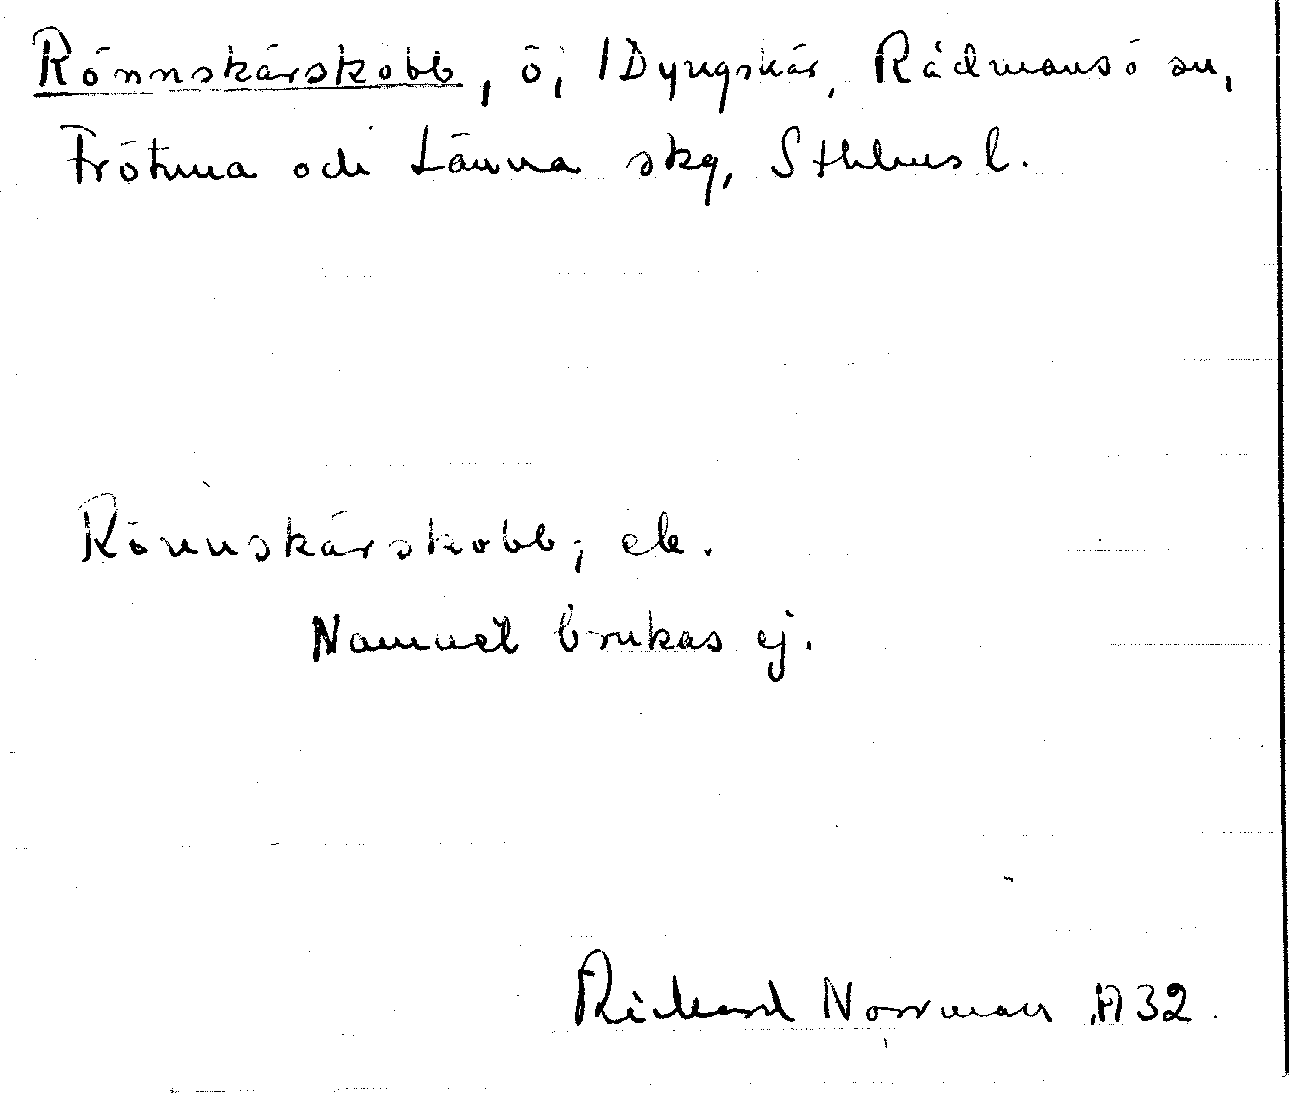 Rönnskärskobb, ö, /Dyngskär, Rådmansö sn,
Frötuna och Länna skg, Sthlms l.
Rönnskärskobb, ek.
Namnet brukas ej.
Rickard Norrman A32.